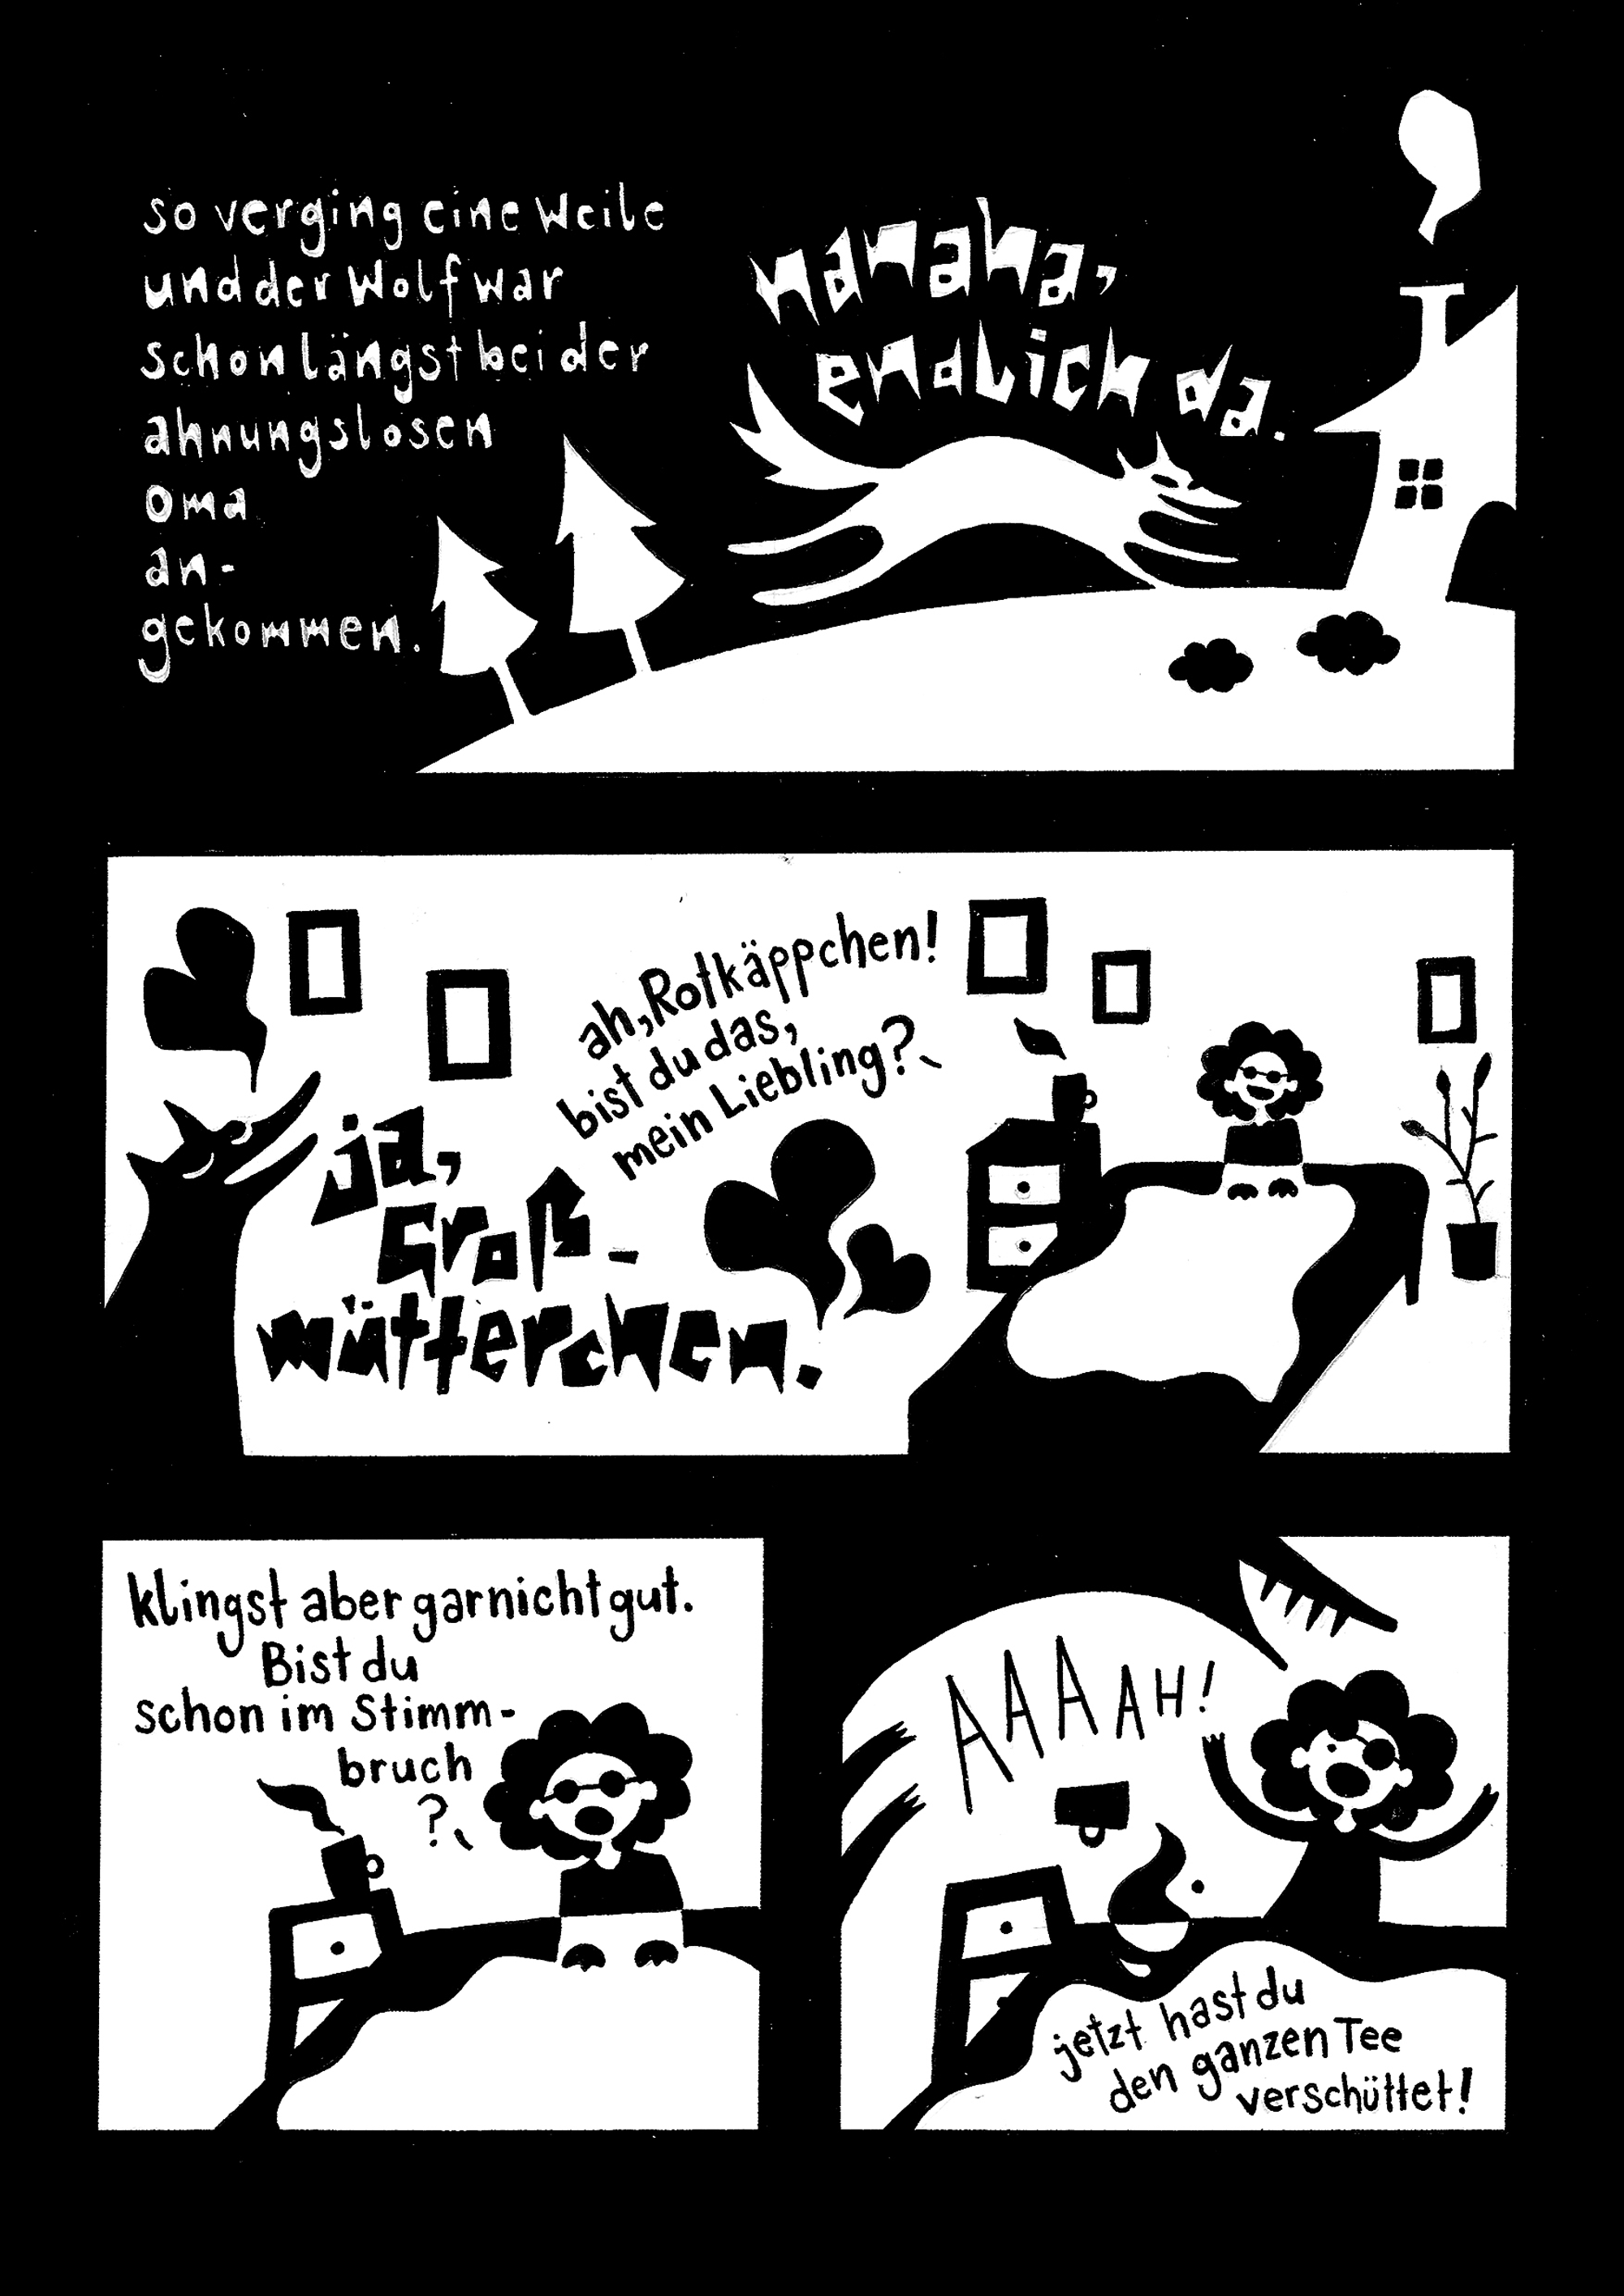 so verging eine Weile
und der Wolf war
schon längst bei der
ahnungslosen
Oma
an-
gekommen.
Hahaha,
endlich da.
ah, Rotkäppchen!
bist du das,
mein Liebling?
ja,
Groß-
mütterchen.
klingst aber garnicht gut.
Bist du
schon im Stimm-
bruch
?
AAAAH!
jetzt hast du
den ganzen Tee
verschüttet!